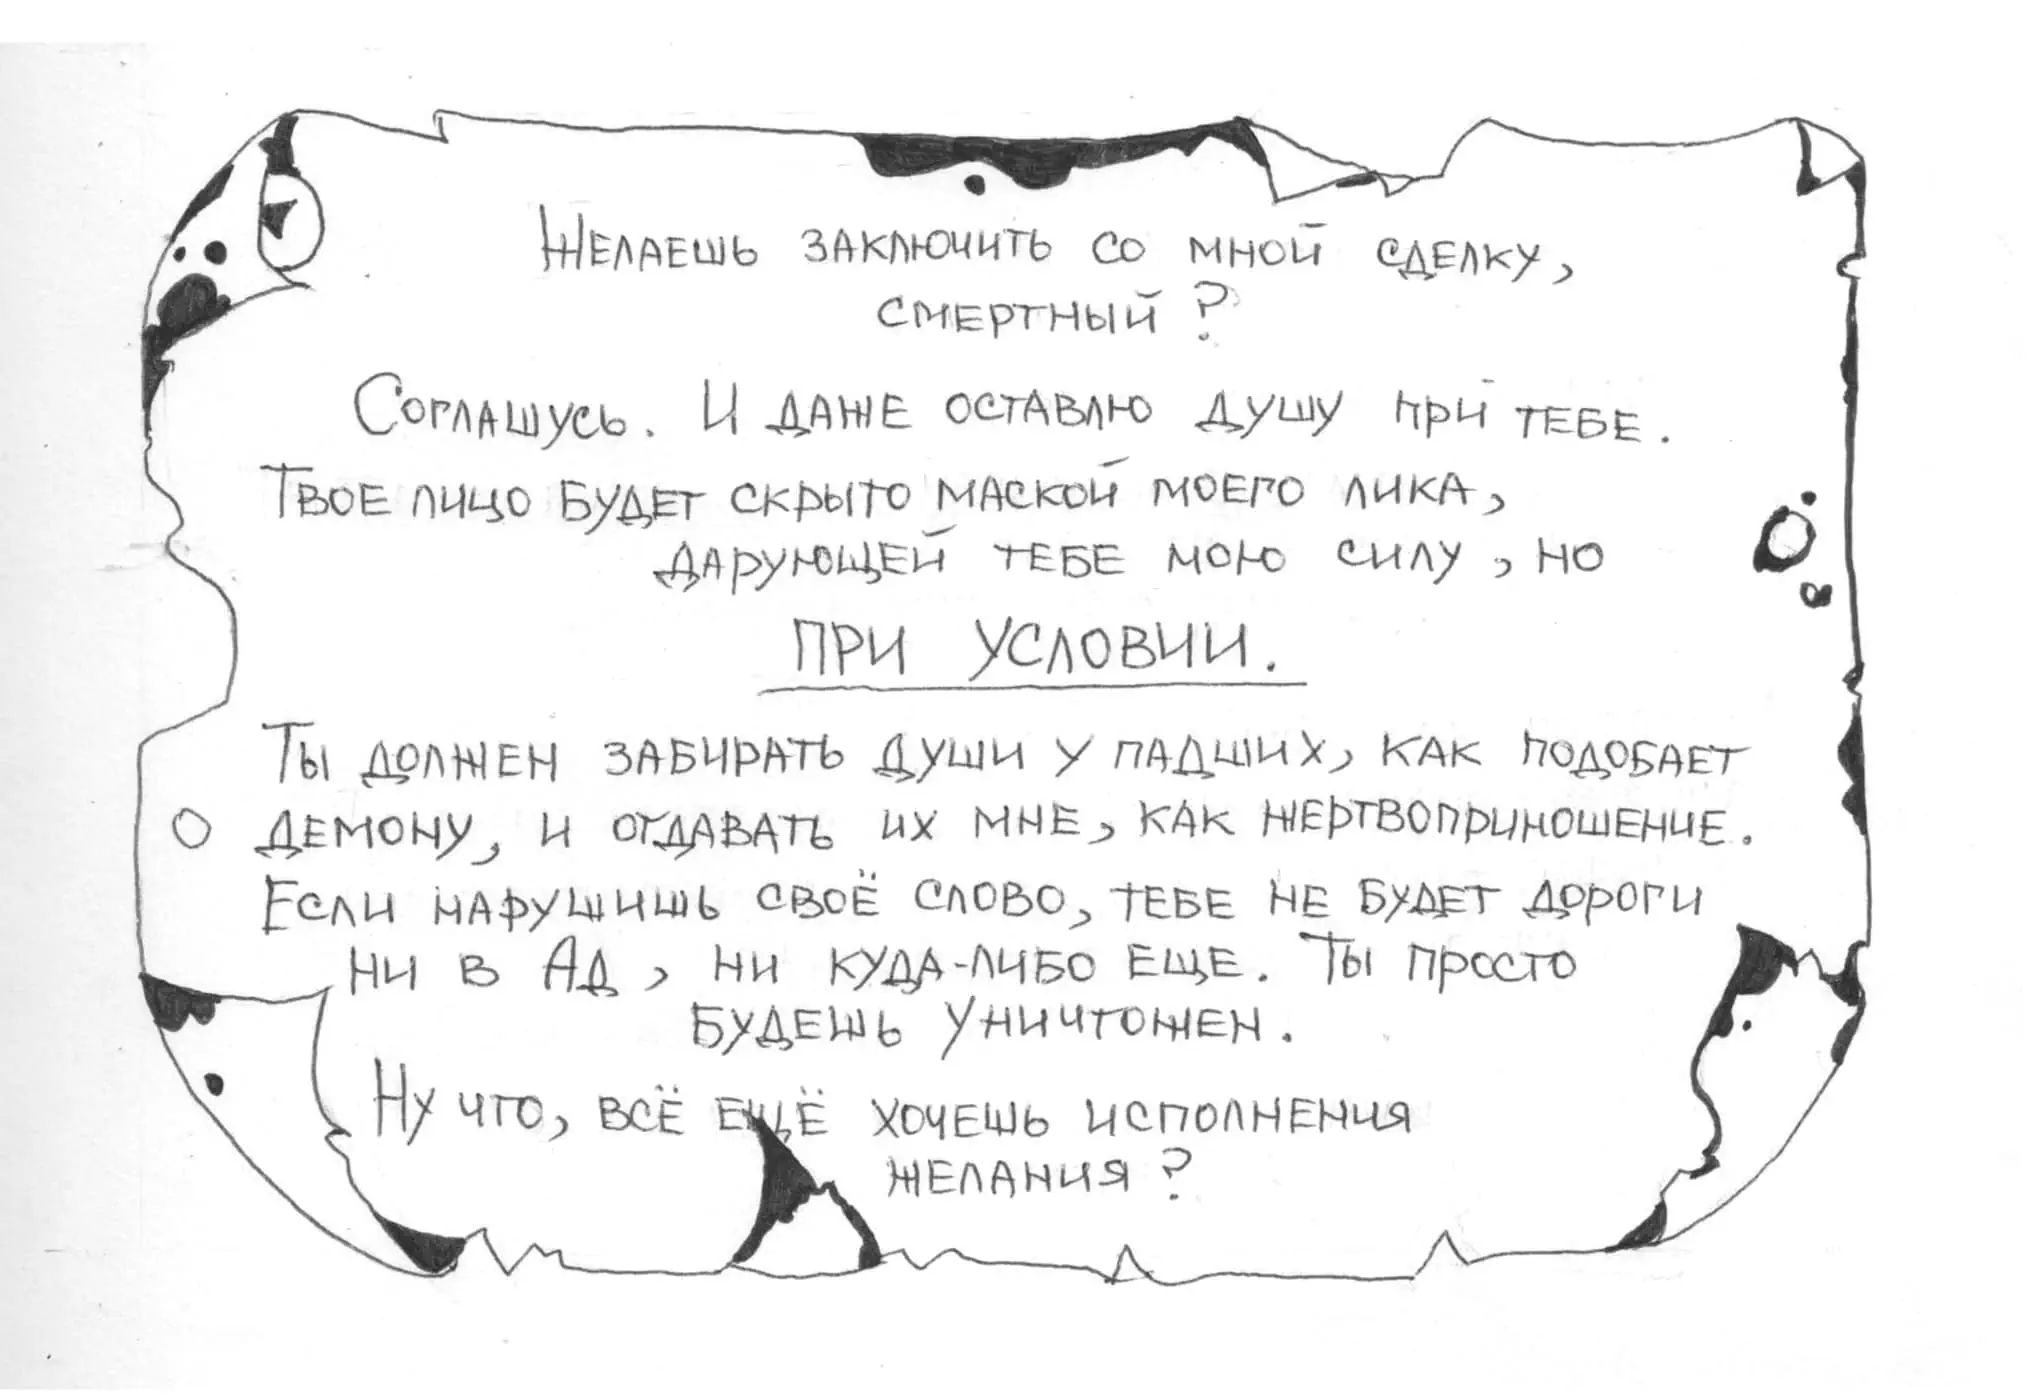 Желаешь заключить со мной сделку,
смертный?
Соглашусь. И даже оставлю душу при тебе.
Твое лицо будет скрыто маской моего лика,
дарующей тебе мою силу, но
ПРИ УСЛОВИИ.
Ты должен забирать души у падших, как подобает
демону, и отдавать их мне, как жертвоприношение.
Если нарушишь своё слово, тебе не будет дороги
ни в Ад, ни куда-либо еще. Ты просто
будешь уничтожен.
Ну что, всё ещё хочешь исполнения
желания?